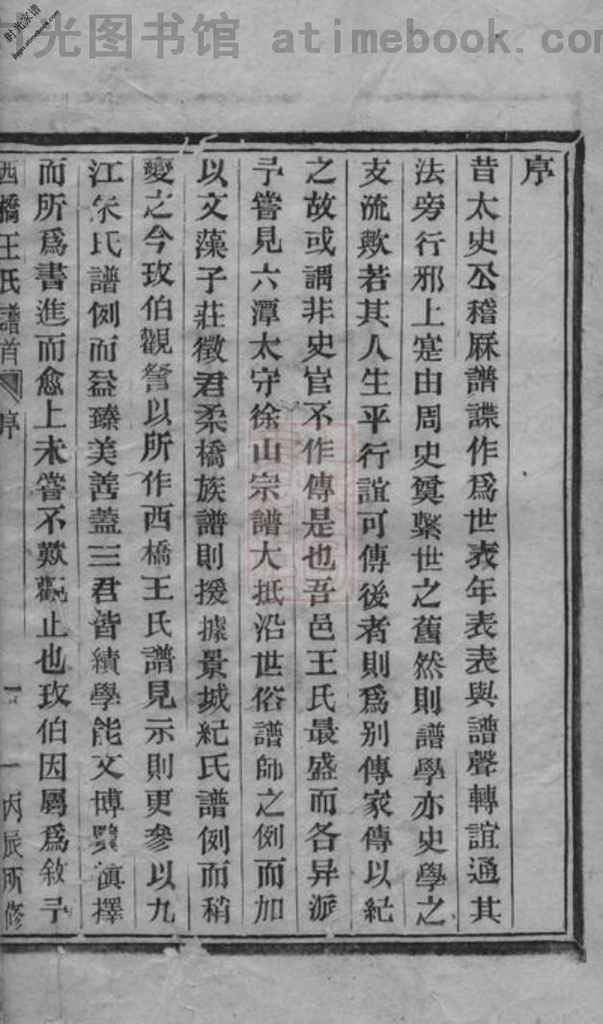 时光图书馆 atimebook.com
时光家谱
序
昔太史公稽厤譜諜作爲世表年表表與譜聲轉誼通其
法旁行邪上寔由周史奠繫世之舊然則譜學亦史學之
支流歟若其人生平行誼可傳後者則爲别傳家傳以紀
之故或謂非史官不作傳是也吾邑王氏最盛而各异派
予嘗見六潭太守徐山宗譜大抵沿世俗譜師之例而加
以文藻子莊徵君柔橋族譜則援據景城紀氏譜例而稍
變之今玫伯觀詧以所作西橋王氏譜見示則更參以九
江朱氏譜例而益臻美善蓋三君皆績學能文博覽滇擇
而所爲書進而愈上未嘗不歎觀止也玫伯因屬爲敘予
西橋王氏譜首 序 一 丙辰所修